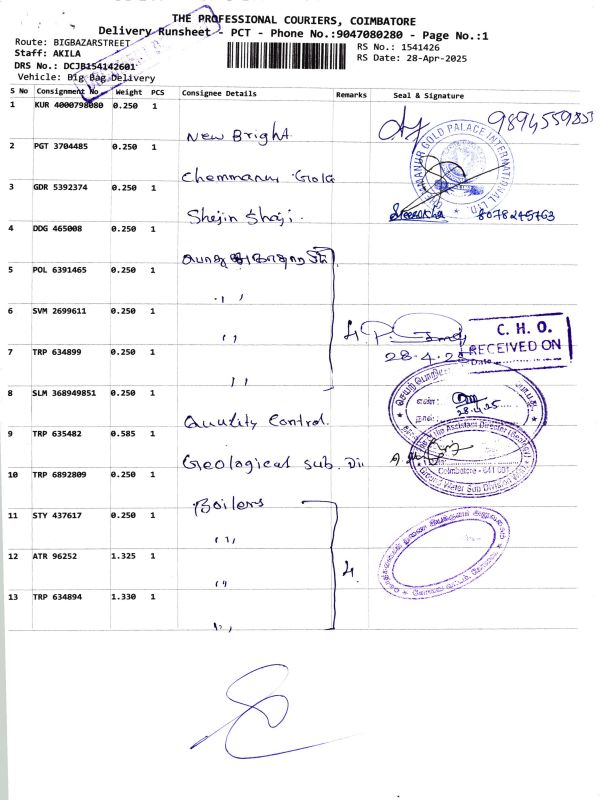 THE PROFESSIONAL COURIERS, COIMBATORE
Delivery Runsheet - PCT - Phone No.:9047080280 - Page No.:1
Route: BIGBAZARSTREET
RS No.: 1541426
Staff: AKILA
RS Date: 28-Apr-2025
DRS No.: DCJB154142601
Vehicle: Big Bag Delivery
S No Consignment No Weight PCS Consignee Details Remarks Seal & Signature
1 KUR 4000798080 0.250 1 New Bright 9894559853
2 PGT 3704485 0.250 1 Chemmanur Gold
3 GDR 5392374 0.250 1 Shejin Shaji. 8078245763
4 DDG 465008 0.250 1
5 POL 6391465 0.250 1 " "
6 SVM 2699611 0.250 1 " "
7 TRP 634899 0.250 1 " " 4 28.4.25
C. H. O.
RECEIVED ON
Date
8 SLM 368949851 0.250 1 Quality Control.
எண்:
நாள்: 28.4.25
9 TRP 635482 0.585 1 Geological sub. Div
Assistant Director
Ground Water Sub Division
Coimbatore - 641 001
10 TRP 6892809 0.250 1 Boilers
11 STY 437617 0.250 1 " "
12 ATR 96252 1.325 1 " " 4.
13 TRP 634894 1.330 1 " "